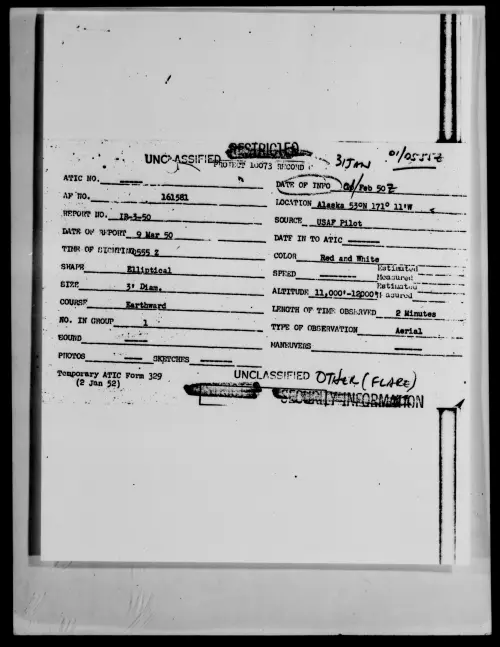 RESTRICTED
UNCLASSIFIED PROJECT 10073 RECORD 31 JAN 01/0555Z
ATIC NO. DATE OF INFO Feb 50 Z
AF NO. 161581 LOCATION Alaska 53ON 171O 11'W
REPORT NO. IR-3-50 SOURCE USAF Pilot
DATE OF REPORT 9 Mar 50 DATE IN TO ATIC
TIME OF SIGHTING 0555 Z COLOR Red and White
SHAPE Elliptical SPEED Estimated Measured
SIZE 3' Diam. ALTITUDE 11,000'-12000' Estimated Measured
COURSE Earthward LENGTH OF TIME OBSERVED 2 Minutes
NO. IN GROUP 1 TYPE OF OBSERVATION Aerial
SOUND MANEUVERS
PHOTOS SKETCHES
Temporary ATIC Form 329
(2 Jan 52)
UNCLASSIFIED OTHER (FLARE)
SECURITY INFORMATION